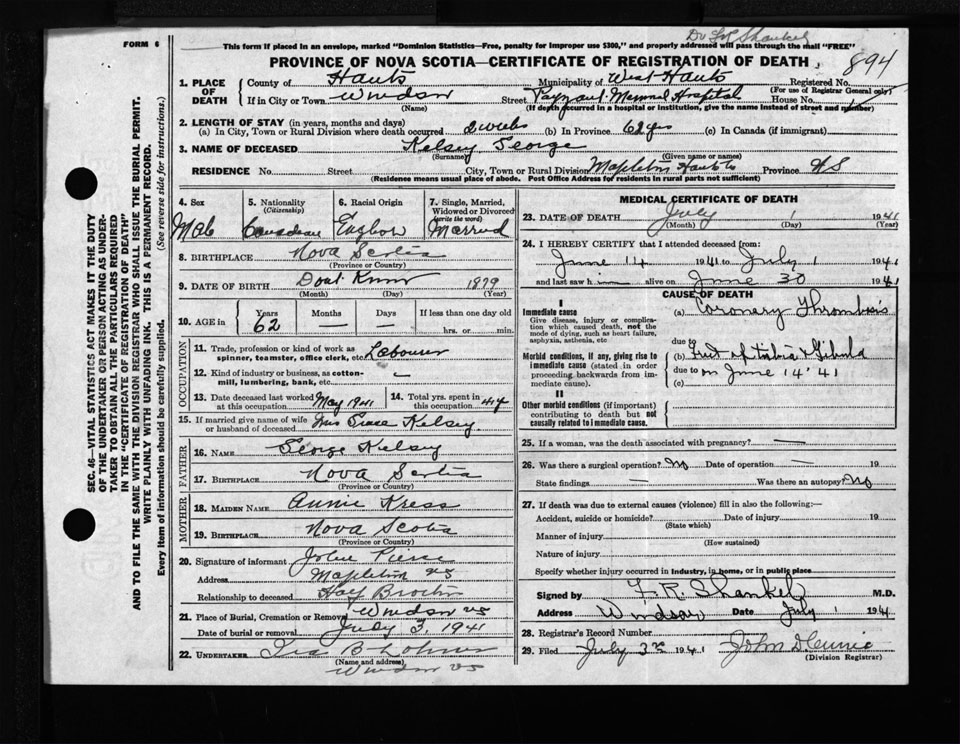 Dr F R Shankel
FORM 6
This form if placed in an envelope, marked "Dominion Statistics—Free, penalty for improper use $300," and properly addressed will pass through the mail "FREE"
PROVINCE OF NOVA SCOTIA—CERTIFICATE OF REGISTRATION OF DEATH
894
1. PLACE OF DEATH
County of Hants Municipality of West Hants Registered No.
(For use of Registrar General only)
If in City or Town Windsor Street Payzant Memorial Hospital House No.
(Name) (If death occurred in a hospital or institution, give the name instead of street and number)
2. LENGTH OF STAY (in years, months and days)
(a) In City, Town or Rural Division where death occurred 2 weeks (b) In Province 62 yrs (c) In Canada (if immigrant)
3. NAME OF DECEASED Kelsey George
(Surname) (Given name or names)
RESIDENCE No. Street City, Town or Rural Division Mapleton Hants Province NS
(Residence means usual place of abode. Post Office Address for residents in rural parts not sufficient)
4. Sex
Male
5. Nationality
(Citizenship)
Canadian
6. Racial Origin
English
7. Single, Married, Widowed or Divorced
(write the word)
Married
8. BIRTHPLACE Nova Scotia
(Province or Country)
9. DATE OF BIRTH Dont Know 1879
(Month) (Day) (Year)
10. AGE in Years Months Days If less than one day old
62 — — hrs. or min.
OCCUPATION
11. Trade, profession or kind of work as spinner, teamster, office clerk, etc. Labourer
12. Kind of industry or business, as cotton-mill, lumbering, bank, etc. —
13. Date deceased last worked at this occupation May 1941
14. Total yrs. spent in this occupation 44
15. If married give name of wife or husband of deceased Mrs Grace Kelsey
FATHER
16. NAME George Kelsey
17. BIRTHPLACE Nova Scotia
(Province or Country)
MOTHER
18. MAIDEN NAME Annie Kress
19. BIRTHPLACE Nova Scotia
(Province or Country)
20. Signature of informant John
Address Mapleton NS
Relationship to deceased Half Brother
21. Place of Burial, Cremation or Removal Windsor NS
Date of burial or removal July 3 1941
22. UNDERTAKER Ira B
(Name and address)
Windsor NS
MEDICAL CERTIFICATE OF DEATH
23. DATE OF DEATH July 1 1941
(Month) (Day) (Year)
24. I HEREBY CERTIFY that I attended deceased from:
June 14 1941 to July 1 1941
and last saw h im alive on June 30 1941
CAUSE OF DEATH
I
Immediate cause
Give disease, injury or complication which caused death, not the mode of dying, such as heart failure, asphyxia, asthenia, etc
(a) Coronary Thrombosis
due to
Morbid conditions, if any, giving rise to immediate cause (stated in order proceeding backwards from immediate cause).
(b) Frct of tibia & fibula
due to on June 14 '41
(c)
II
Other morbid conditions (if important) contributing to death but not causally related to immediate cause.
25. If a woman, was the death associated with pregnancy? —
26. Was there a surgical operation? No Date of operation — 19
State findings — Was there an autopsy? No
27. If death was due to external causes (violence) fill in also the following:
Accident, suicide or homicide? Date of injury 19
(State which)
Manner of injury
(How sustained)
Nature of injury
Specify whether injury occurred in industry, in home, or in public place
Signed by F. R. Shankel M.D.
Address Windsor Date July 1 1941
28. Registrar's Record Number
29. Filed July 3rd 1941
(Division Registrar)
SEC. 46—VITAL STATISTICS ACT MAKES IT THE DUTY
OF THE UNDERTAKER OR PERSON ACTING AS UNDERTAKER
TO OBTAIN ALL THE PARTICULARS REQUIRED
IN THE "CERTIFICATE OF REGISTRATION OF DEATH"
AND TO FILE THE SAME WITH THE DIVISION REGISTRAR WHO SHALL ISSUE THE BURIAL PERMIT.
WRITE PLAINLY WITH UNFADING INK. THIS IS A PERMANENT RECORD.
Every item of information should be carefully supplied. (See reverse side for instructions.)